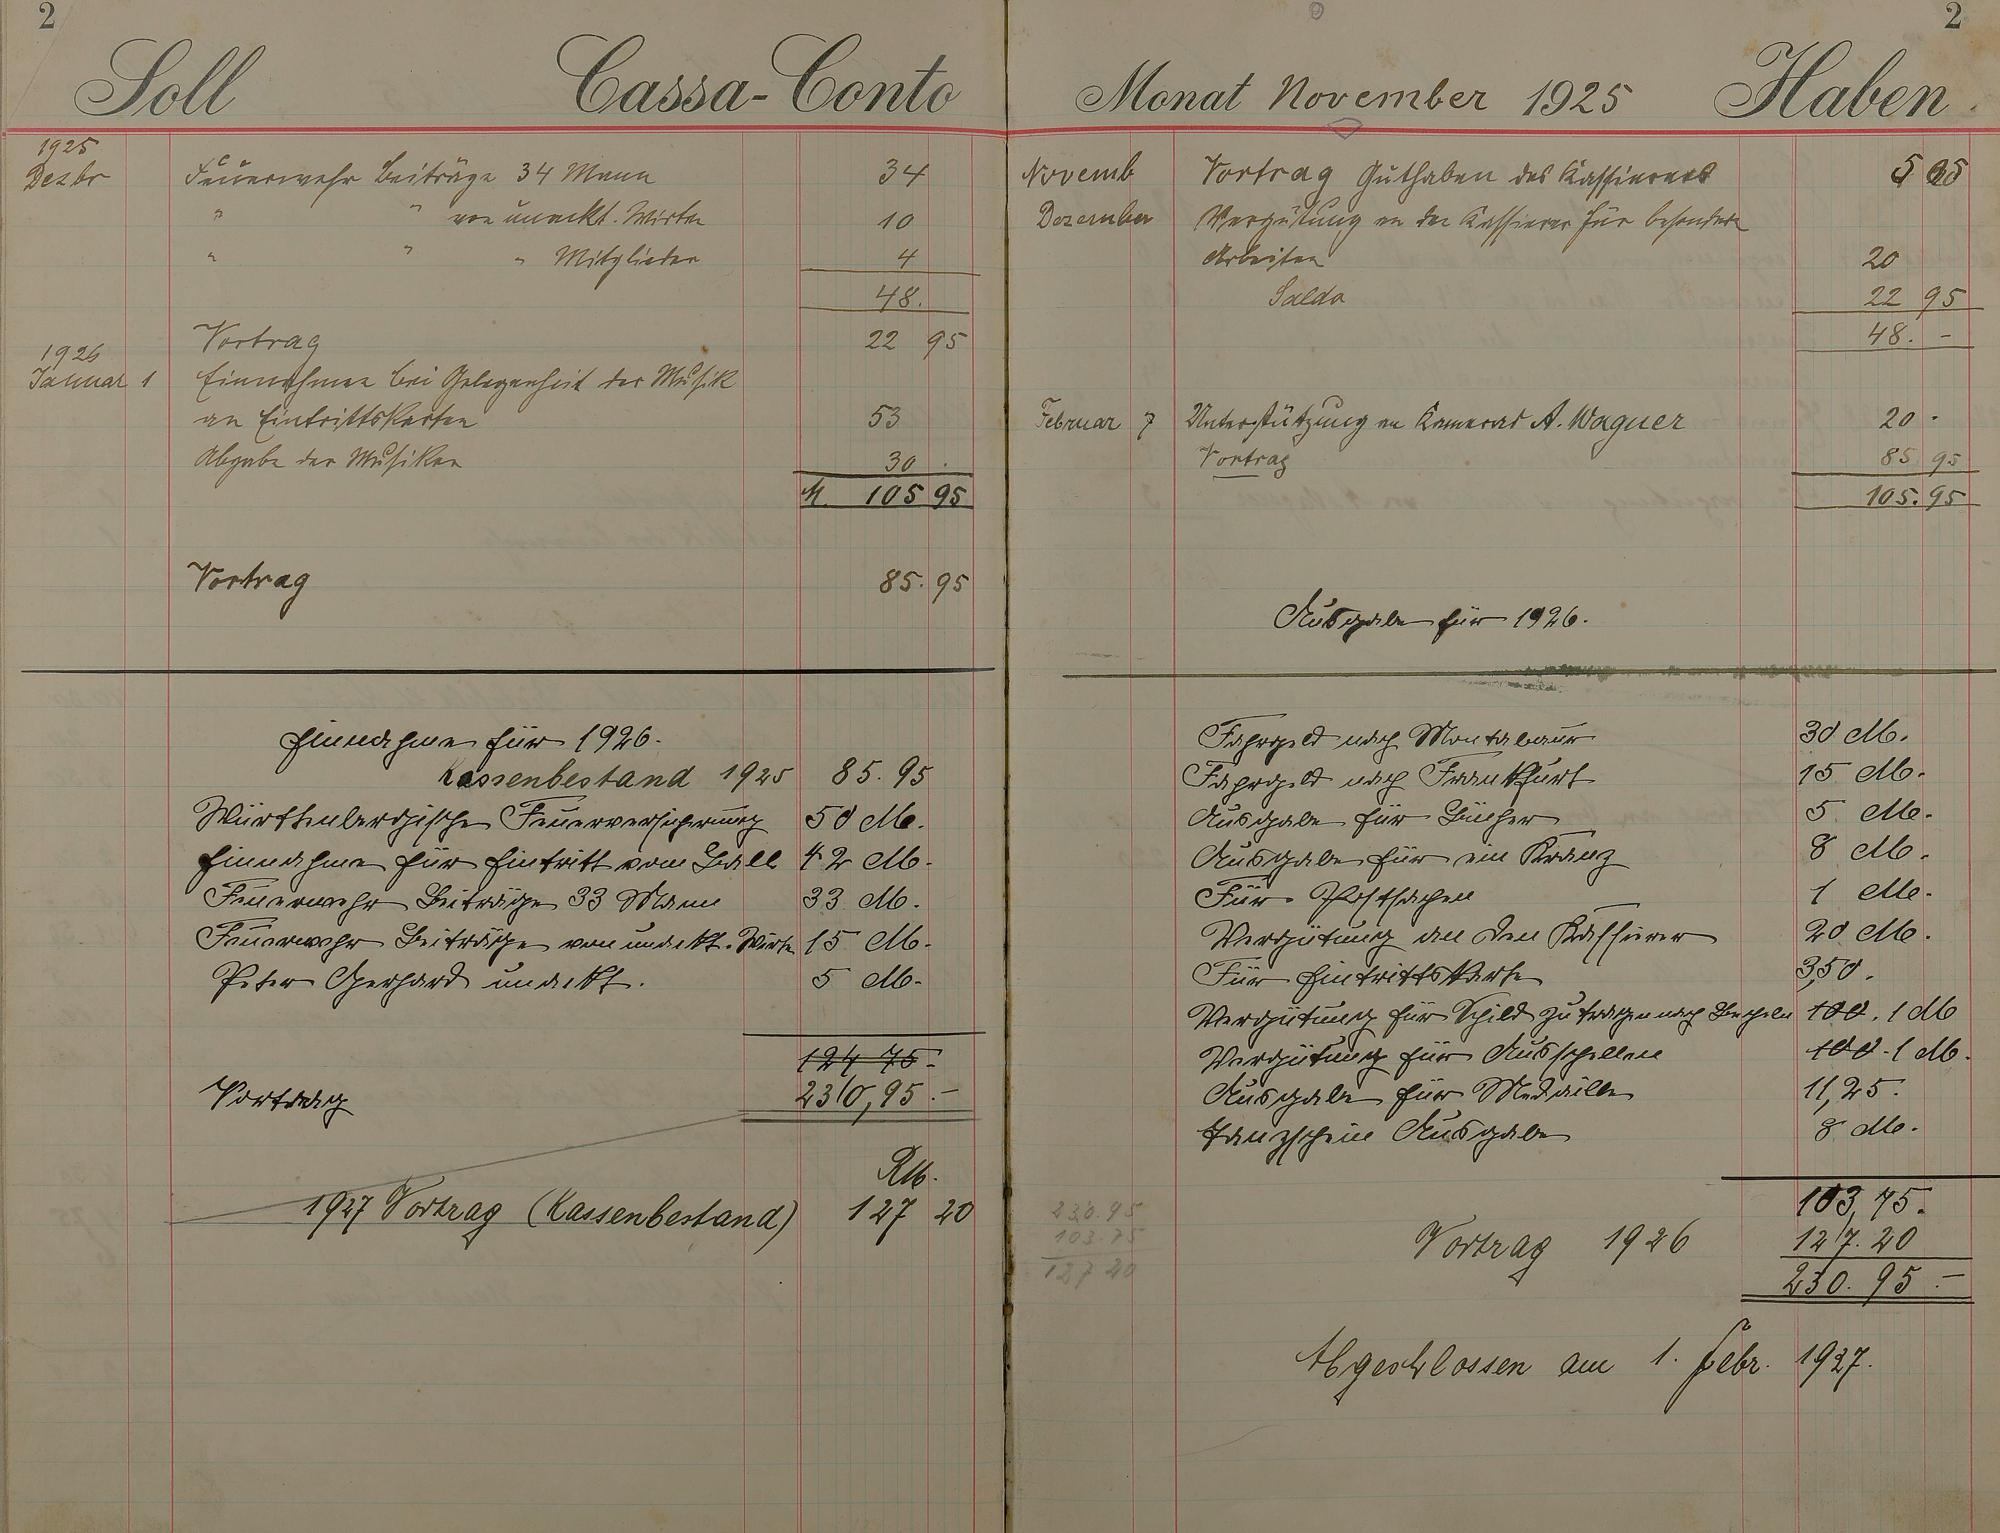 2
Soll Cassa-Conto
1925
Dezbr Feuerwehr Beiträge 34 Mann 34
" " von unackt. Wirten 10
" " " Mitglieder 4
48.
Vortrag 22 95
1926
Januar 1 Einnahmen bei Gelegenheit der Musik
an Eintrittskarten 53
Abgabe der Musiker 30 .
M. 105 95
Vortrag 85. 95
Einnahme für 1926.
Kassenbestand 1925 85. 95
Württenbergische Feuerversicherung 50 M.
Einnahme für Eintritt vom Ball 42 M.
Feuerwehr Beiträge 33 Mann 33 M.
Feuerwehr Beiträge von unackt. Wirte 15 M.
Peter Gerhard unackt. 5 M.
124 75.
Vortrag 230,95.-
RM.
1927 Vortrag (Kassenbestand) 127 20
2
Monat November 1925 Haben
Novemb Vortrag Guthaben des Kassierers 5 05
Dezember Vergütung an den Kassierer für besondere
Arbeiten 20
Saldo 22 95
48. -
Februar 7 Unterstützung an Kamerad A. Wagner 20 -
Vortrag 85 95
105. 95
Ausgabe für 1926.
Fahrgeld nach Montabaur 30 M.
Fahrgeld nach Frankfurt 15 M.
Ausgabe für Bücher 5 M.
Ausgabe für ein Kranz 8 M.
Für Postsachen 1 M.
Vergütung an den Kassierer 20 M.
Für Eintrittskarte 3,50.
Vergütung für Schild zu tragen nach Becheln 100. 1 M
Vergütung für Ausschellen 100. 1 M.
Ausgabe für Medaille 11,25.
Tanzschein Ausgabe 8 M.
103,75.
230.95
103.75
127 20
Vortrag 1926 127. 20
230. 95.-
Abgeschlossen am 1. Febr. 1927.